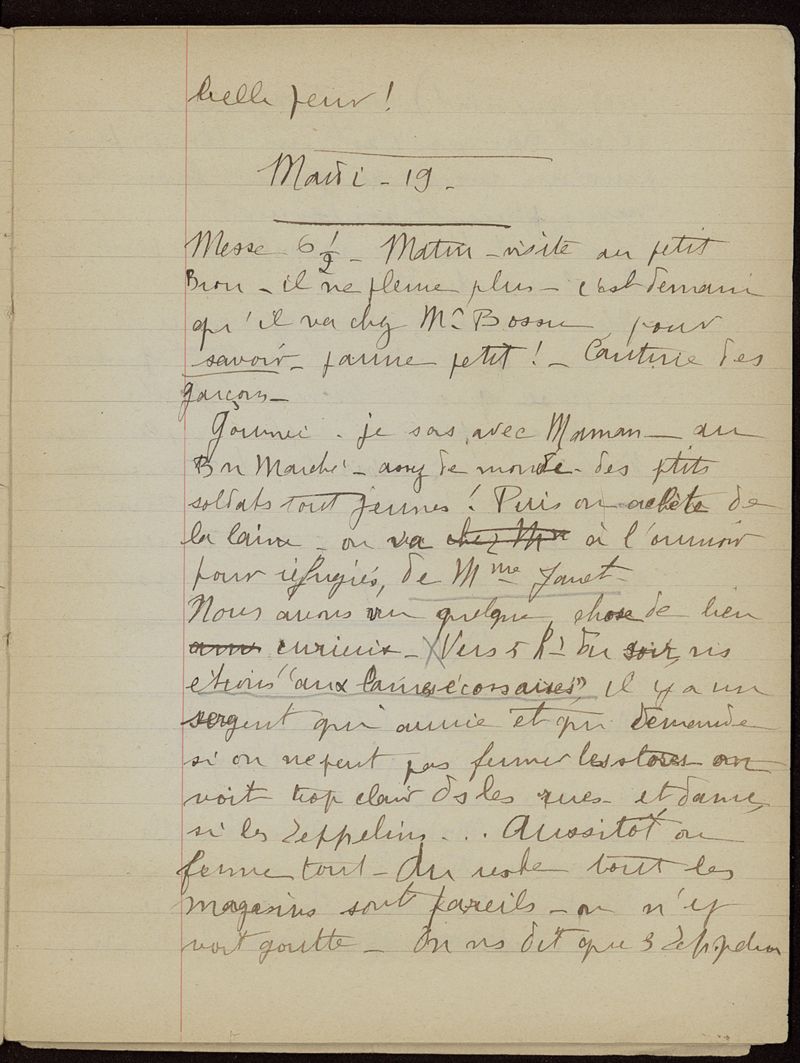 belle peur!
Mardi - 19 -
Messe 6 1/2 - Matin - visite au petit
Bron - il ne pleure plus - c'est demain
qu'il va chez Mr Bossu, pour
savoir - pauvre petit! - Cantine des
garçons -
je sors avec Maman - au
Bon Marché - assez de monde - des ptits
soldats tout jeunes! Puis on achète de
la laine - on va chez Mme à l'ouvroir
pour réfugiés, de Mme Janet -
Nous avons vu quelque chose de bien
curieux - X Vers 5 h - du soir, ns
etions "aux laines écossaises", il y a un
sergent qui arrive et qui demande
si on ne peut pas fermer les stores on
voit trop clair ds les rues - et dame,
si les Zeppelins... Aussitôt on
ferme tout - Du reste tout les
magasins sont pareils - on n'y
voit goutte - On ns dit que 3 Zeppelin